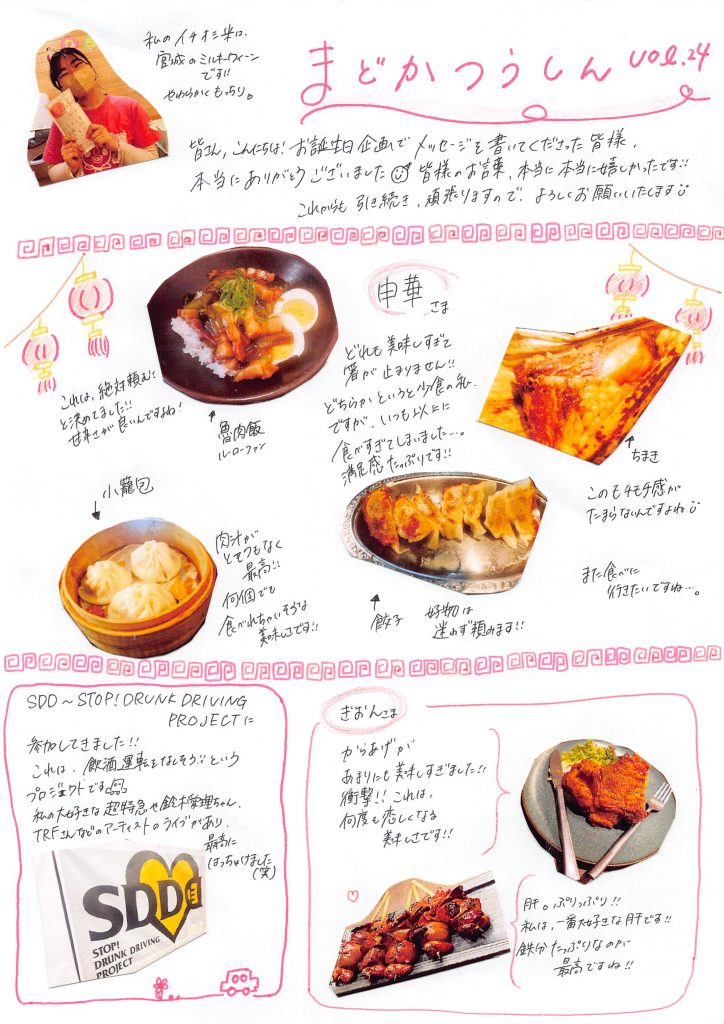 私のイチオシ米は、
宮城のミルキークィーン
です!!
やわらかくもっちり。
まどかつうしん vol.24
皆さん、こんにちは! お誕生日企画でメッセージを書いてくださった皆様、
本当にありがとうございました 皆様のお言葉、本当に本当に嬉しかったです!!
これからも引き続き、頑張りますので、よろしくお願いいたします
申華さま
どれも美味しすぎて
箸が止まりません!!
どちらかというと少食の私
ですが、いつも以上に
食べすぎてしまいました…。
満足感たっぷりです!!
これは、絶対頼もう
と決めてました!!
甘辛さが良いんですよね!
魯肉飯
ルーローファン
ちまき
このモチモチ感が
たまらないんですよね
また食べに
行きたいですね…。
小籠包
肉汁が
とてつもなく
最高!!
何個でも
食べれちゃいそうな
美味しさです!!
餃子
好物は
迷わず頼みます!!
SDD~STOP! DRUNK DRIVING
PROJECTに
参加してきました!!
これは、飲酒運転をなくそう!!という
プロジェクトです
私の大好きな超特急や鈴木愛理ちゃん、
TRFさんなどのアーティストのライブがあり、
最高に
はっちゃけました
(笑)
SDD
STOP!
DRUNK DRIVING
PROJECT
ぎおんさま
からあげが
あまりにも美味しすぎました!!
衝撃!! これは、
何度も恋しくなる
美味しさです!!
肝。ぷりっぷり!!
私は、一番大好きな肝です!!
鉄分たっぷりなのが
最高ですね!!